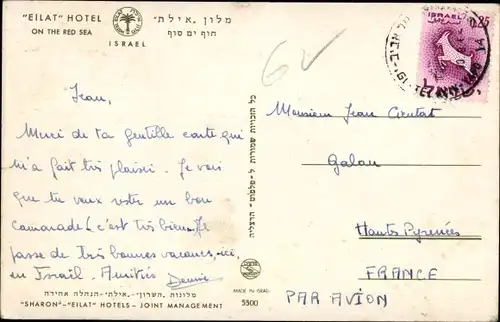 "EILAT" HOTEL
ON THE RED SEA
ISRAEL
מלון "אילת"
חוף ים סוף
Jean,
Merci de ta gentille carte qui
m'a fait très plaisir. Je vois
que tu veux rester un bon
camarade (c'est très bien. Je
passe de très bonnes vacances, ici,
en Israël. Amitiés
Denise
מלונות "השרון"-"אילת"-הנהלה אחידה
"SHARON"-"EILAT" HOTELS - JOINT MANAGEMENT
כל הזכויות שמורות
הרצליה
MADE IN ISRAEL
5500
ISRAEL
0.25
Monsieur Jean
Galan
Hautes Pyrénées
FRANCE
PAR AVION